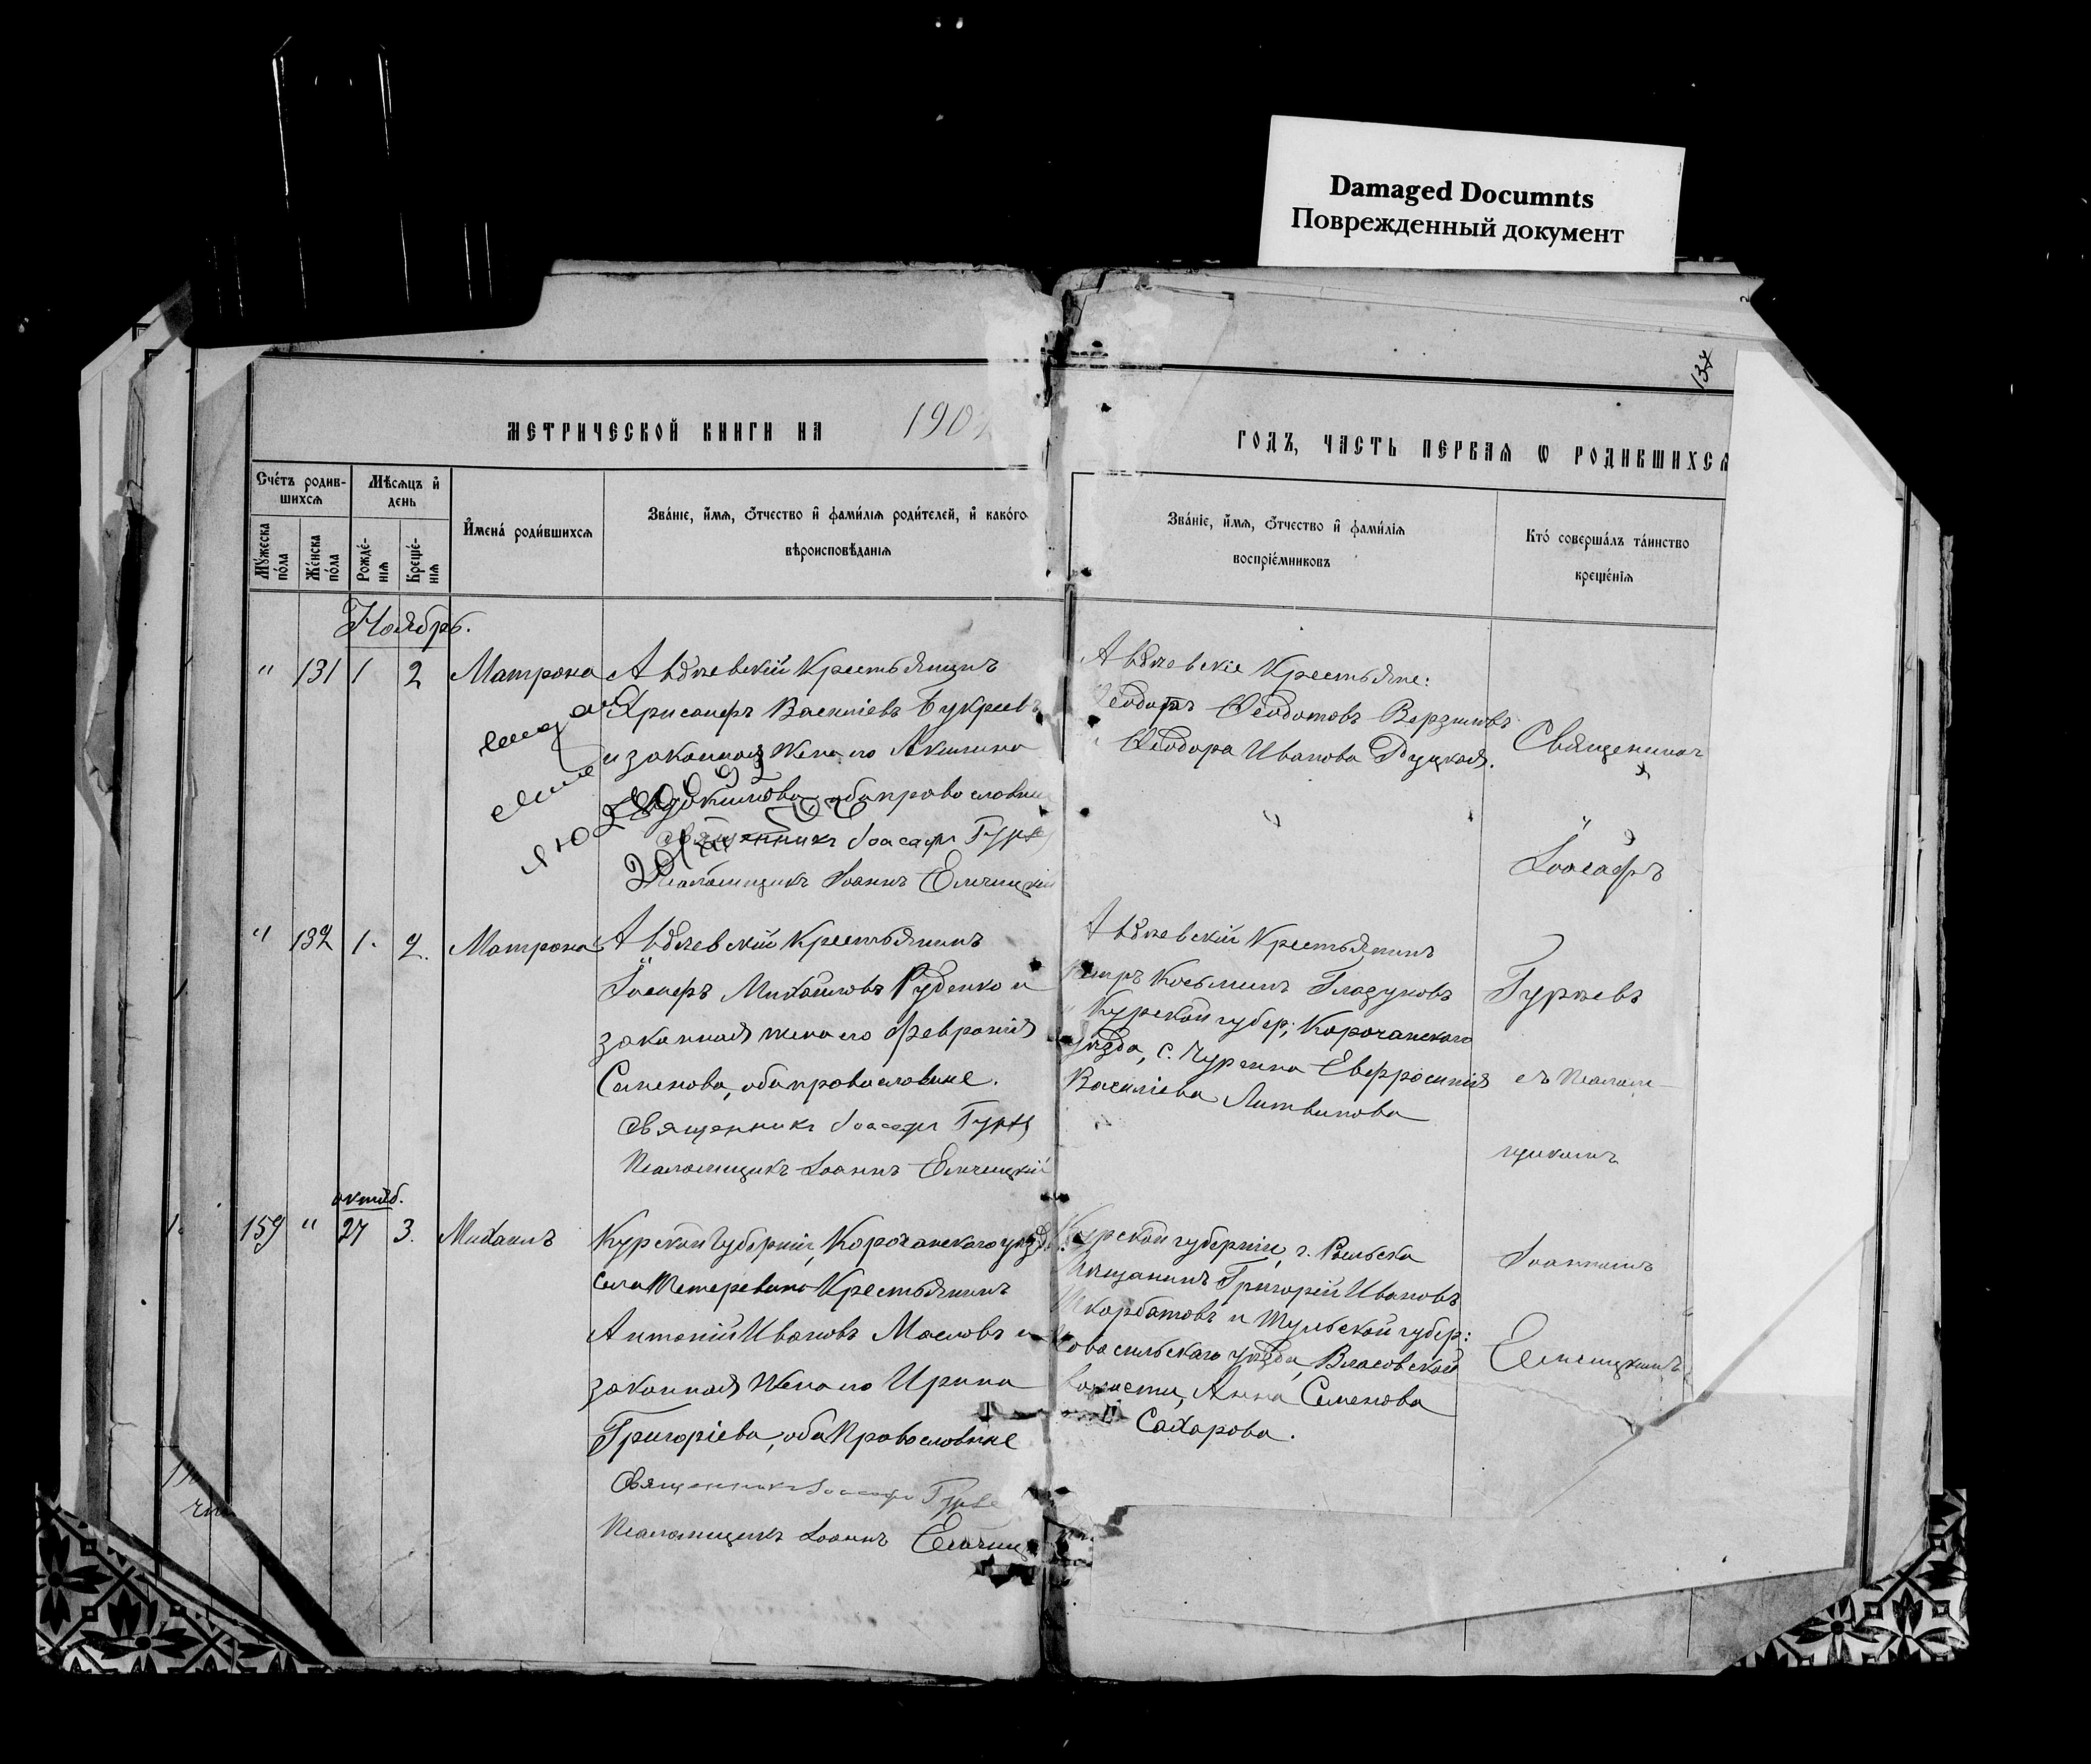 Damaged Documnts
Поврежденный документ
МЕТРИЧЕСКОЙ КНИГИ НА 190
ГОДЪ, ЧАСТЬ ПЕРВАЯ Ѡ РОДИВШИХСЯ
Счетъ родив-
шихся
Мѣсяцъ и
день
Мужеска
пола
Женска
пола
Рожде-
нія
Креще-
нія
Имена родившихся
Званіе, имя, отчество и фамилія родителей, и какого
вѣроисповѣданія
Званіе, имя, отчество и фамилія
воспріемниковъ
Кто совершалъ таинство
крещенія
Ноябрь.
" 131 1 2 Матрона
Авдѣевскій Крестьянинъ
Хрисанфъ Василіевъ Букреевъ
и законная жена его Акилина
оба православны
священникъ Іоасафъ Гурѣ
Псаломщикъ Іоаннъ
Авдѣевскіе Крестьяне:
Ѳеодотовъ
Ѳеодора Иванова Руцкая.
" 132 1. 2. Матрона
Авдѣевскій Крестьянинъ
Іосифъ Михайловъ Руденко и
законная жена его Февронія
Семенова, оба православные.
Священникъ Іоасафъ Гурѣ
Псаломщикъ Іоаннъ
Авдѣевскій Крестьянинъ
Петръ Косьминъ Глазуновъ
Курской губер; Корочанскаго
уѣзда, с. Евфросинія
Василіева Литвинова
октяб.
159 " 27 3. Михаилъ
Курской Губерніи, Корочанского уѣзд
села Тетеревино Крестьянинъ
Антоній Ивановъ Масловъ и
законная жена его Ирина
Григоріева, оба Православные
Священникъ Іоасафъ Гурѣе
Псаломщикъ Іоаннъ
Курской губерніи, г. Рыльска
Мѣщанинъ Григорій Ивановъ
Шкорбатовъ и Тульской губер:
Новосильскаго уѣзда, Власовской
волости, Анна Семенова
Сахарова.
Священникъ
Іоасафъ
Гурѣевъ
съ Псалом-
щикомъ
Іоанномъ